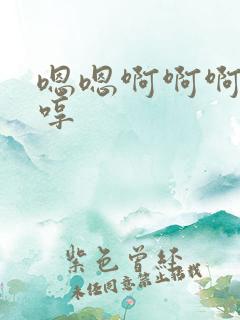 嗯嗯啊啊啊
哼
紫色曾经
未经同意禁止搭线